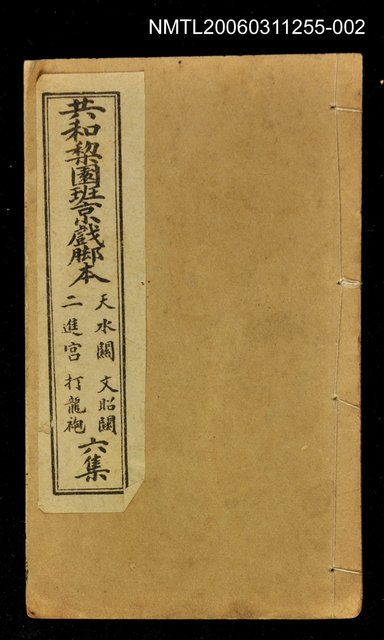 NMTL20060311255-002
共和梨園班京戲脚本
天水關 文昭關
二進宮 打龍袍
六集